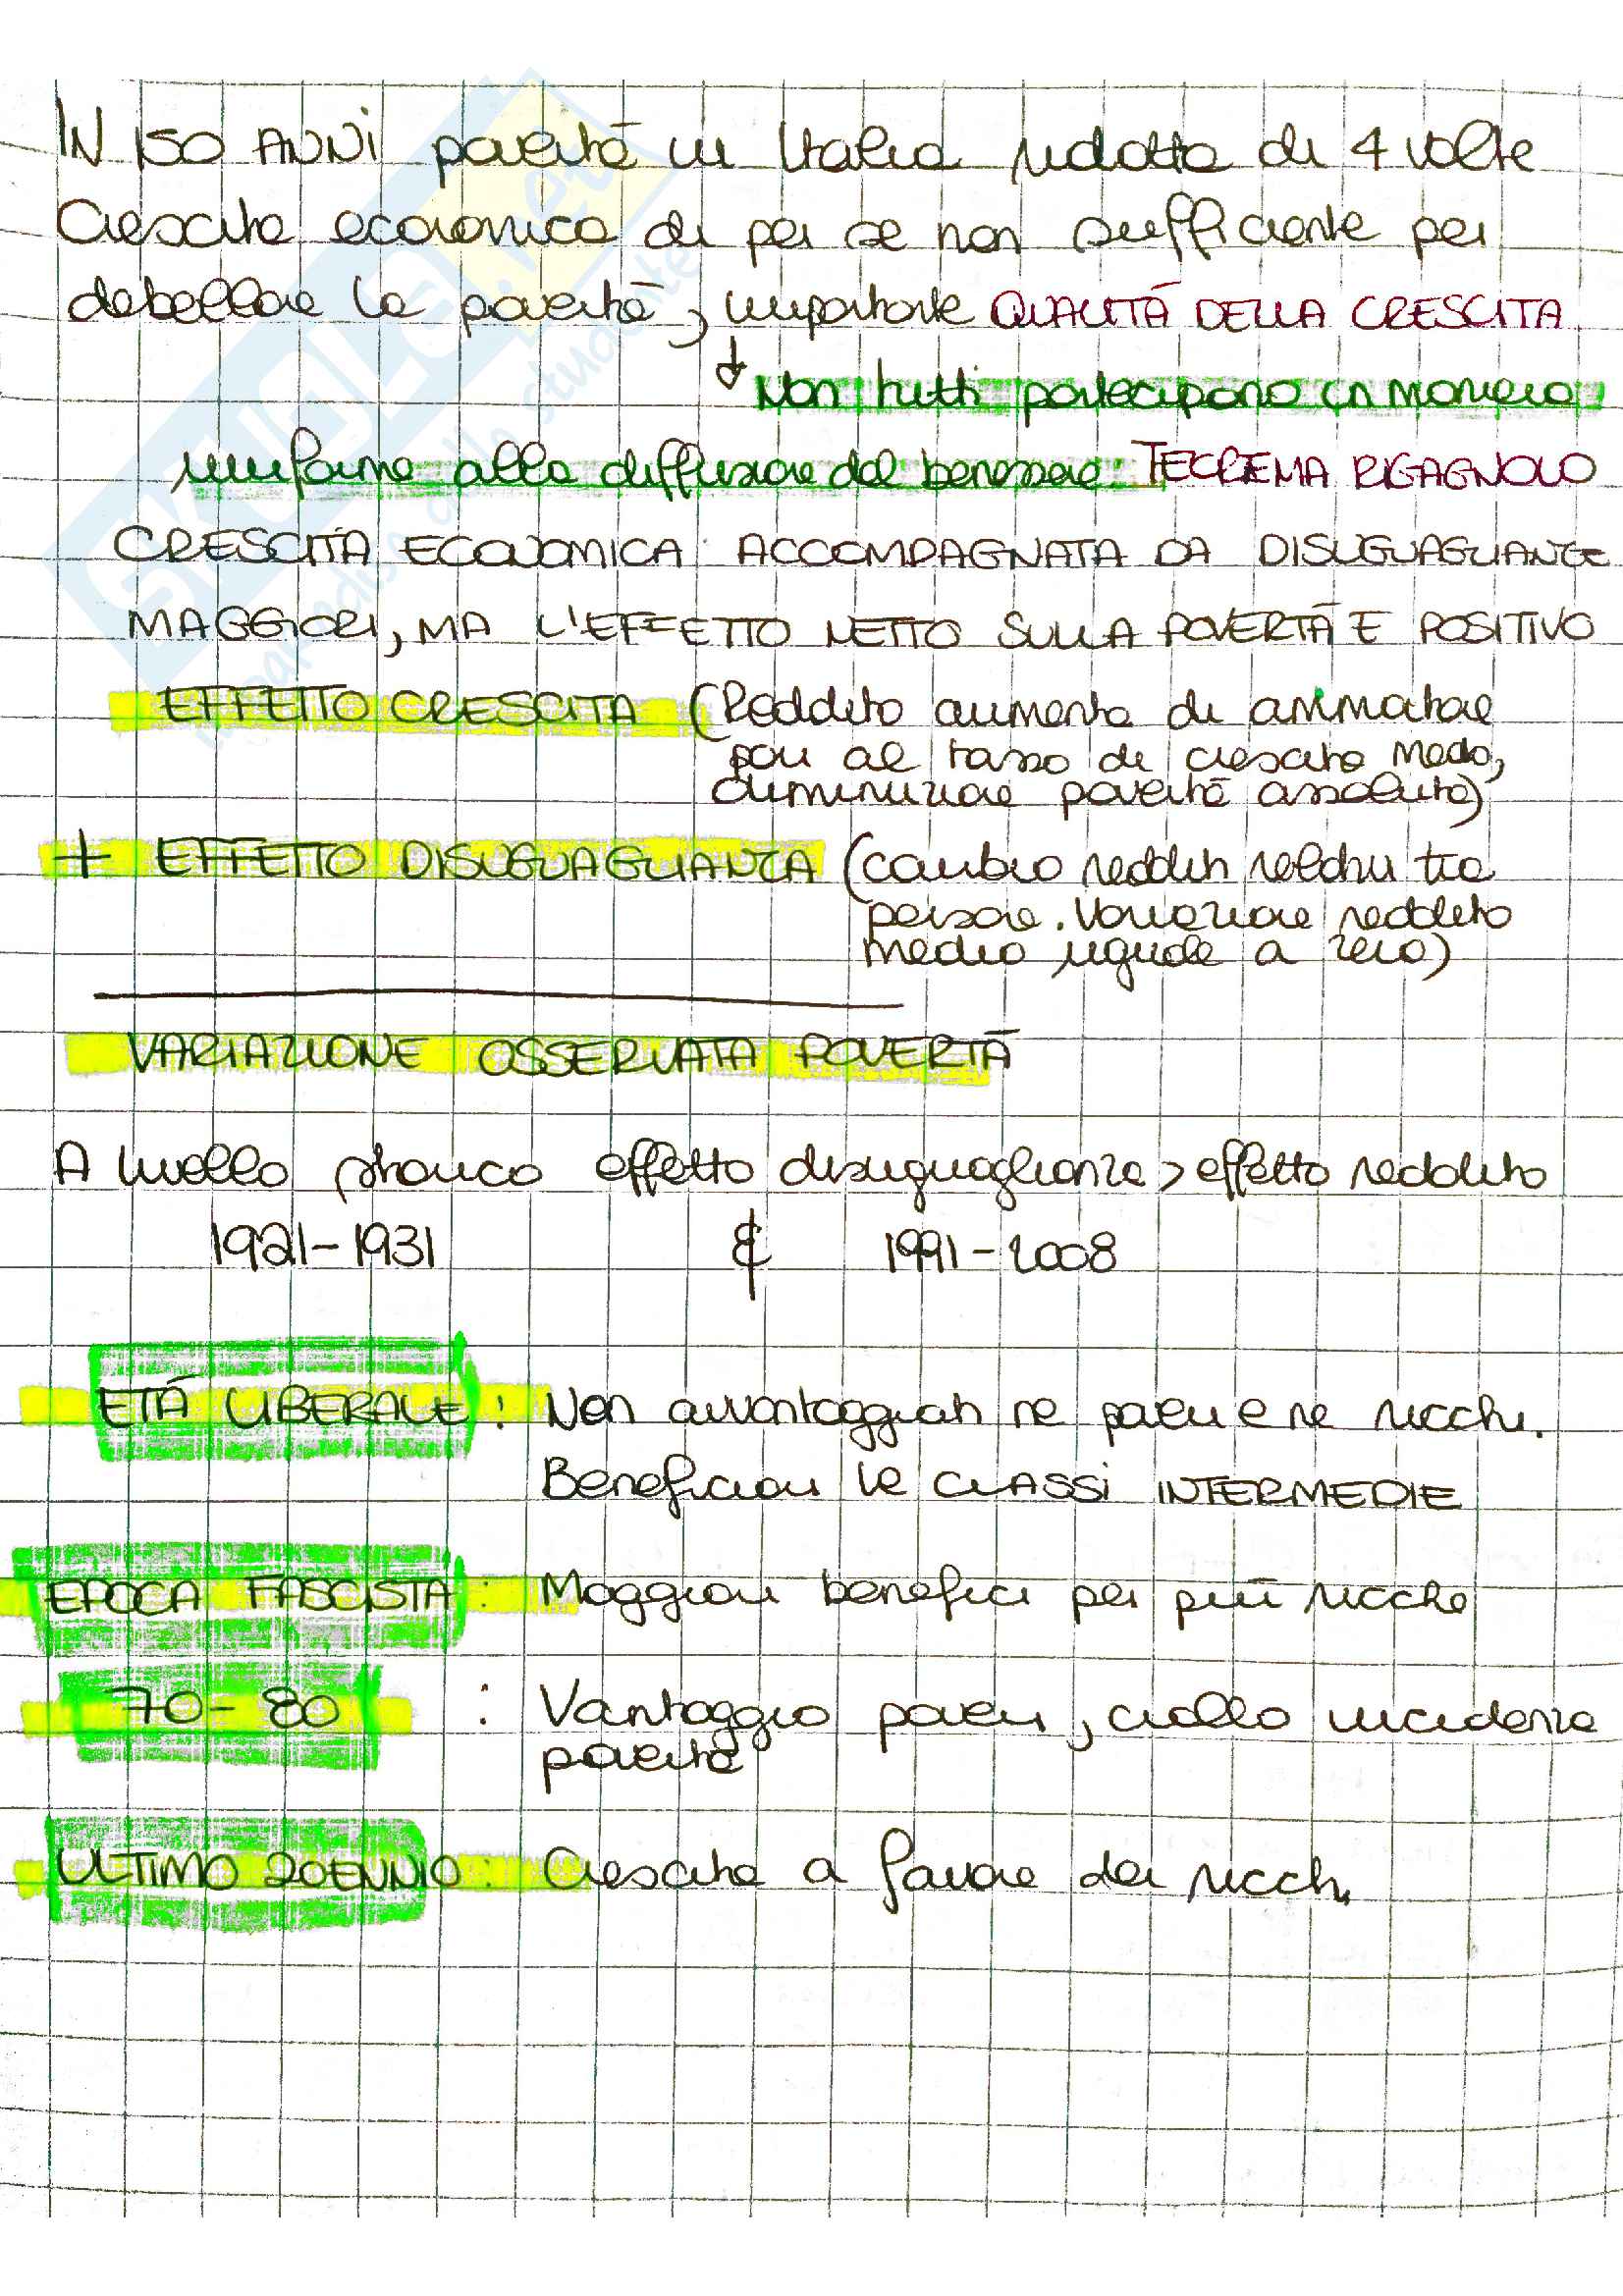 IN 150 ANNI povertà in Italia ridotta di 4 volte
Crescita economica di per se non sufficiente per
debellare la povertà, importante QUALITÀ DELLA CRESCITA
↓ Non tutti partecipano in maniera
uniforme alla diffusione del benessere: TEOREMA RIGAGNOLO
CRESCITA ECONOMICA ACCOMPAGNATA DA DISUGUAGLIANZE
MAGGIORI, MA L'EFFETTO NETTO SULLA POVERTÀ È POSITIVO
EFFETTO CRESCITA (Reddito aumenta di
pari al tasso di crescita medio,
diminuzione povertà assoluta)
+ EFFETTO DISUGUAGLIANZA (cambio redditi relativi tra
persone. Variazione reddito
medio uguale a zero)
VARIAZIONE OSSERVATA POVERTÀ
A livello storico effetto disuguaglianza > effetto reddito
1921-1931 & 1991-2008
ETÀ LIBERALE: Non avvantaggiati ne poveri e ne ricchi.
Beneficiari le CLASSI INTERMEDIE
EPOCA FASCISTA: Maggiori benefici per più ricche
70-80 : Vantaggio poveri, crollo incidenza
povertà
ULTIMO 20ENNIO: Crescita a favore dei ricchi
SKUOLA.net
il paradiso dello studente